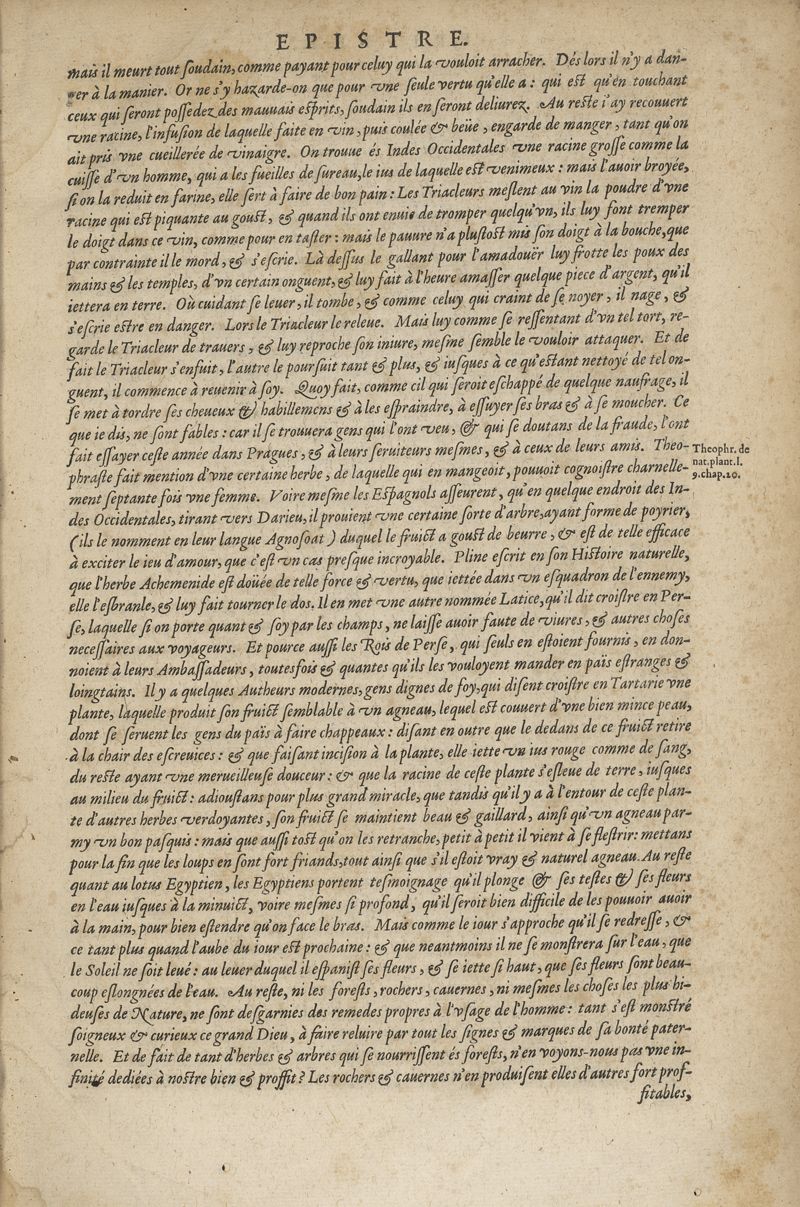 EPISTRE.
mais il meurt tout ſoudain, comme payant pour celuy qui la vouloit arracher. Dés lors il n'y a dan-
ger à la manier. Or ne s'y hazarde-on que pour vne ſeule vertu qu'elle a : qui eſt qu'en touchant
ceux qui ſeront poſſedez des mauuais eſprits, ſoudain ils en ſeront deliurez. Au reſte i'ay recouuert
vne racine, l'infuſion de laquelle faite en vin, puis coulée & beüe, engarde de manger, tant qu'on
ait pris vne cueillerée de vinaigre. On trouue és Indes Occidentales vne racine groſſe comme la
cuiſſe d'vn homme, qui a les fueilles de ſureau, le ius de laquelle eſt venimeux : mais l'auoir broyée,
ſi on la reduit en farine, elle ſert à faire de bon pain : Les Triacleurs meſlent au vin la poudre d'vne
racine qui eſt piquante au gouſt, & quand ils ont enuie de tromper quelqu'vn, ils luy font tremper
le doigt dans ce vin, comme pour en taſter : mais le pauure n'a pluſtoſt mis ſon doigt à la bouche, que
par contrainte il le mord, & s'eſcrie. Là deſſus le gallant pour l'amadouër luy frotte les poux des
mains & les temples, d'vn certain onguent, & luy fait à l'heure amaſſer quelque piece d'argent, qu'il
iettera en terre. Où cuidant ſe leuer, il tombe, & comme celuy qui craint de ſe noyer, il nage, &
s'eſcrie eſtre en danger. Lors le Triacleur le releue. Mais luy comme ſe reſſentant d'vn tel tort, re-
garde le Triacleur de trauers, & luy reproche ſon iniure, meſme ſemble le vouloir attaquer. Et de
fait le Triacleur s'enfuit, l'autre le pourſuit tant & plus, & iuſques à ce qu'eſtant nettoyé de tel on-
guent, il commence à reuenir à ſoy. Quoy fait, comme cil qui ſeroit eſchappé de quelque naufrage, il
ſe met à tordre ſes cheueux & habillemens & à les eſpraindre, à eſſuyer ſes bras & à ſe moucher. Ce
que ie dis, ne ſont fables : car il ſe trouuera gens qui l'ont veu, & qui ſe doutans de la fraude, l'ont
fait eſſayer ceſte année dans Pragues, & à leurs ſeruiteurs meſmes, & à ceux de leurs amis. Theo-
phraſte fait mention d'vne certaine herbe, de laquelle qui en mangeoit, pouuoit cognoiſtre charnelle-
Theophr. de
nat. plant. l.
9. chap. 20.
ment ſeptante fois vne femme. Voire meſme les Eſpagnols aſſeurent, qu'en quelque endroit des In-
des Occidentales, tirant vers Darieu, il prouient vne certaine ſorte d'arbre, ayant forme de poyrier,
(ils le nomment en leur langue Agnoſoat) duquel le fruict a gouſt de beurre, & eſt de telle efficace
à exciter le ieu d'amour, que c'eſt vn cas preſque incroyable. Pline eſcrit en ſon Hiſtoire naturelle,
que l'herbe Achemenide eſt doüée de telle force & vertu, que iettée dans vn eſquadron de l'ennemy,
elle l'eſbranle, & luy fait tourner le dos. Il en met vne autre nommée Latice, qu'il dit croiſtre en Per-
ſe, laquelle ſi on porte quant & ſoy par les champs, ne laiſſe auoir faute de viures, & autres choſes
neceſſaires aux voyageurs. Et pource auſſi les Rois de Perſe, qui ſeuls en eſtoient fournis, en don-
noient à leurs Ambaſſadeurs, toutesfois & quantes qu'ils les vouloyent mander en païs eſtranges &
loingtains. Il y a quelques Autheurs modernes, gens dignes de foy, qui diſent croiſtre en Tartarie vne
plante, laquelle produit ſon fruict ſemblable à vn agneau, lequel eſt couuert d'vne bien mince peau,
dont ſe ſeruent les gens du païs à faire chappeaux : diſant en outre que le dedans de ce fruict retire
à la chair des eſcreuices : & que faiſant inciſion à la plante, elle iette vn ius rouge comme de ſang,
du reſte ayant vne merueilleuſe douceur : & que la racine de ceſte plante s'eſleue de terre, iuſques
au milieu du fruict : adiouſtans pour plus grand miracle, que tandis qu'il y a à l'entour de ceſte plan-
te d'autres herbes verdoyantes, ſon fruict ſe maintient beau & gaillard, ainſi qu'vn agneau par-
my vn bon paſquis : mais que auſſi toſt qu'on les retranche, petit à petit il vient à ſe fleſtrir : mettans
pour la fin que les loups en ſont fort friands, tout ainſi que s'il eſtoit vray & naturel agneau. Au reſte
quant au lotus Egyptien, les Egyptiens portent teſmoignage qu'il plonge & ſes teſtes & ſes fleurs
en l'eau iuſques à la minuict, voire meſmes ſi profond, qu'il ſeroit bien difficile de les pouuoir auoir
à la main, pour bien eſtendre qu'on face le bras. Mais comme le iour s'approche qu'il ſe redreſſe, &
ce tant plus quand l'aube du iour eſt prochaine : & que neantmoins il ne ſe monſtrera ſur l'eau, que
le Soleil ne ſoit leué : au leuer duquel il eſpaniſt ſes fleurs, & ſe iette ſi haut, que ſes fleurs ſont beau-
coup eſlongnées de l'eau. Au reſte, ni les foreſts, rochers, cauernes, ni meſmes les choſes les plus hi-
deuſes de Nature, ne ſont deſgarnies des remedes propres à l'vſage de l'homme : tant s'eſt monſtré
ſoigneux & curieux ce grand Dieu, à faire reluire par tout les ſignes & marques de ſa bonté pater-
nelle. Et de fait de tant d'herbes & arbres qui ſe nourriſſent és foreſts, n'en voyons-nous pas vne in-
finité dediées à noſtre bien & proffit? Les rochers & cauernes n'en produiſent elles d'autres fort prof-
fitables,